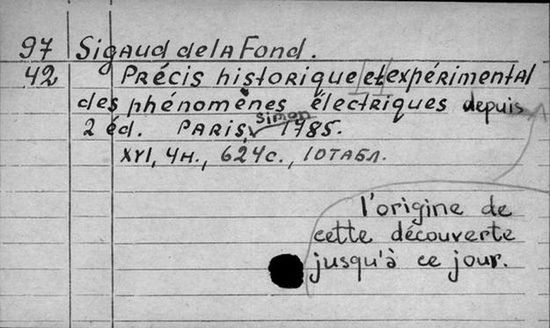 97 Sigaud de la Fond.
42 Précis historique et expérimental
des phénomènes électriques depuis
2 éd. Paris, Simon 1785.
XVI, 4н., 624с., 10табл.
l'origine de
cette découverte
jusqu'à ce jour.